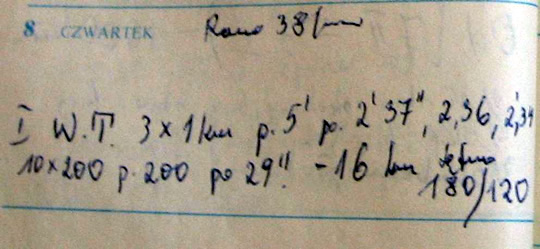 8 CZWARTEK Rano 38/min
I W.T. 3 x 1 km p. 5' po. 2' 37", 2,36, 2',34
10x200 p. 200 po 29". - 16 km tętno
180/120